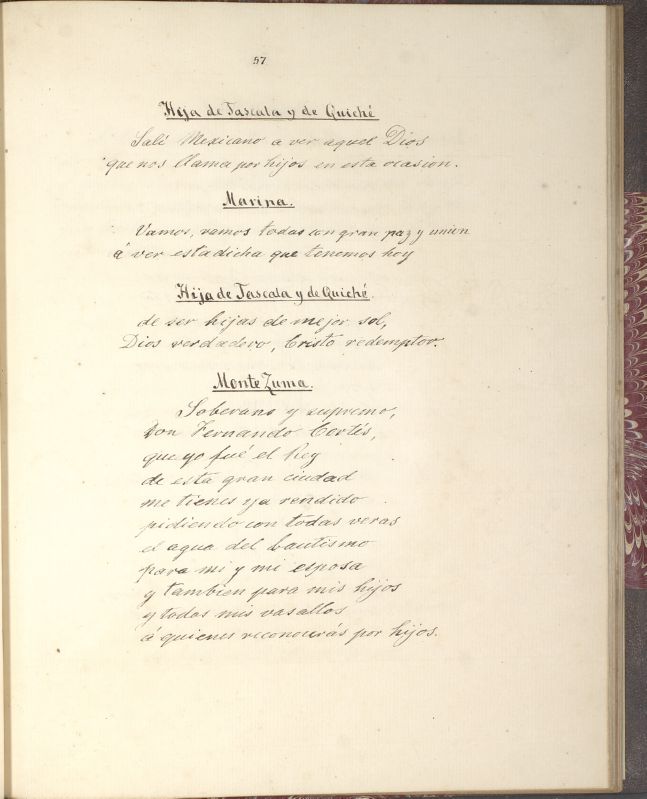 57
Hija de Tascala y de Quiché
Salí Mexicano a ver aquel Dios
que nos llama por hijos en esta ocasion.
Marina.
Vamos, vamos todas con gran paz y union
á ver esta dicha que tenemos hoy
Hija de Tascala y de Quiché.
de ser hijas de mejor sol,
Dios verdadero, Cristo redemptor.
MonteZuma.
Soberano y supremo,
Don Fernando Cortés,
que yo fué el Rey
de esta gran ciudad
me tienes ya rendido
pidiendo con todas veras
el agua del bautismo
para mi y mi esposa
y tambien para mis hijos
y todos mis vasallos
á quienes reconocerás por hijos.